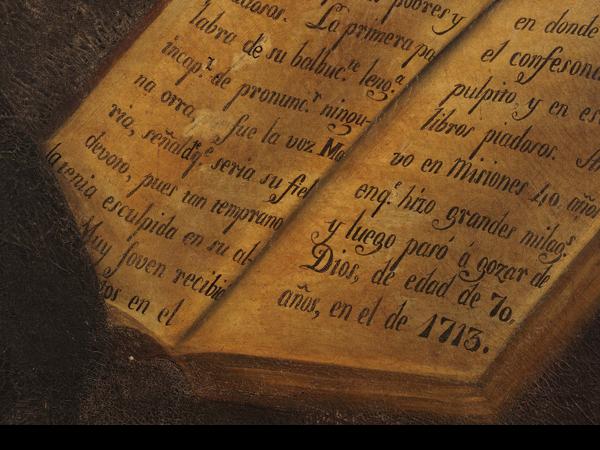 pobres y
La primera pa
labra de su balbuc.te leng.a
incap.z de pronunc.r ningu-
na orra, fue la voz Ma
ria, señal dq.e seria su fiel
devoto, pues tan temprano
la tenia esculpida en su al-
Muy joven recibio
en el
en donde
el confesona
pulpito, y en es
libros piadosos.
vo en Misiones 40. años
enq.e hizo grandes milag.s
y luego pasó á gozar de
Dios, de edad de 70.
años, en el de 1713.